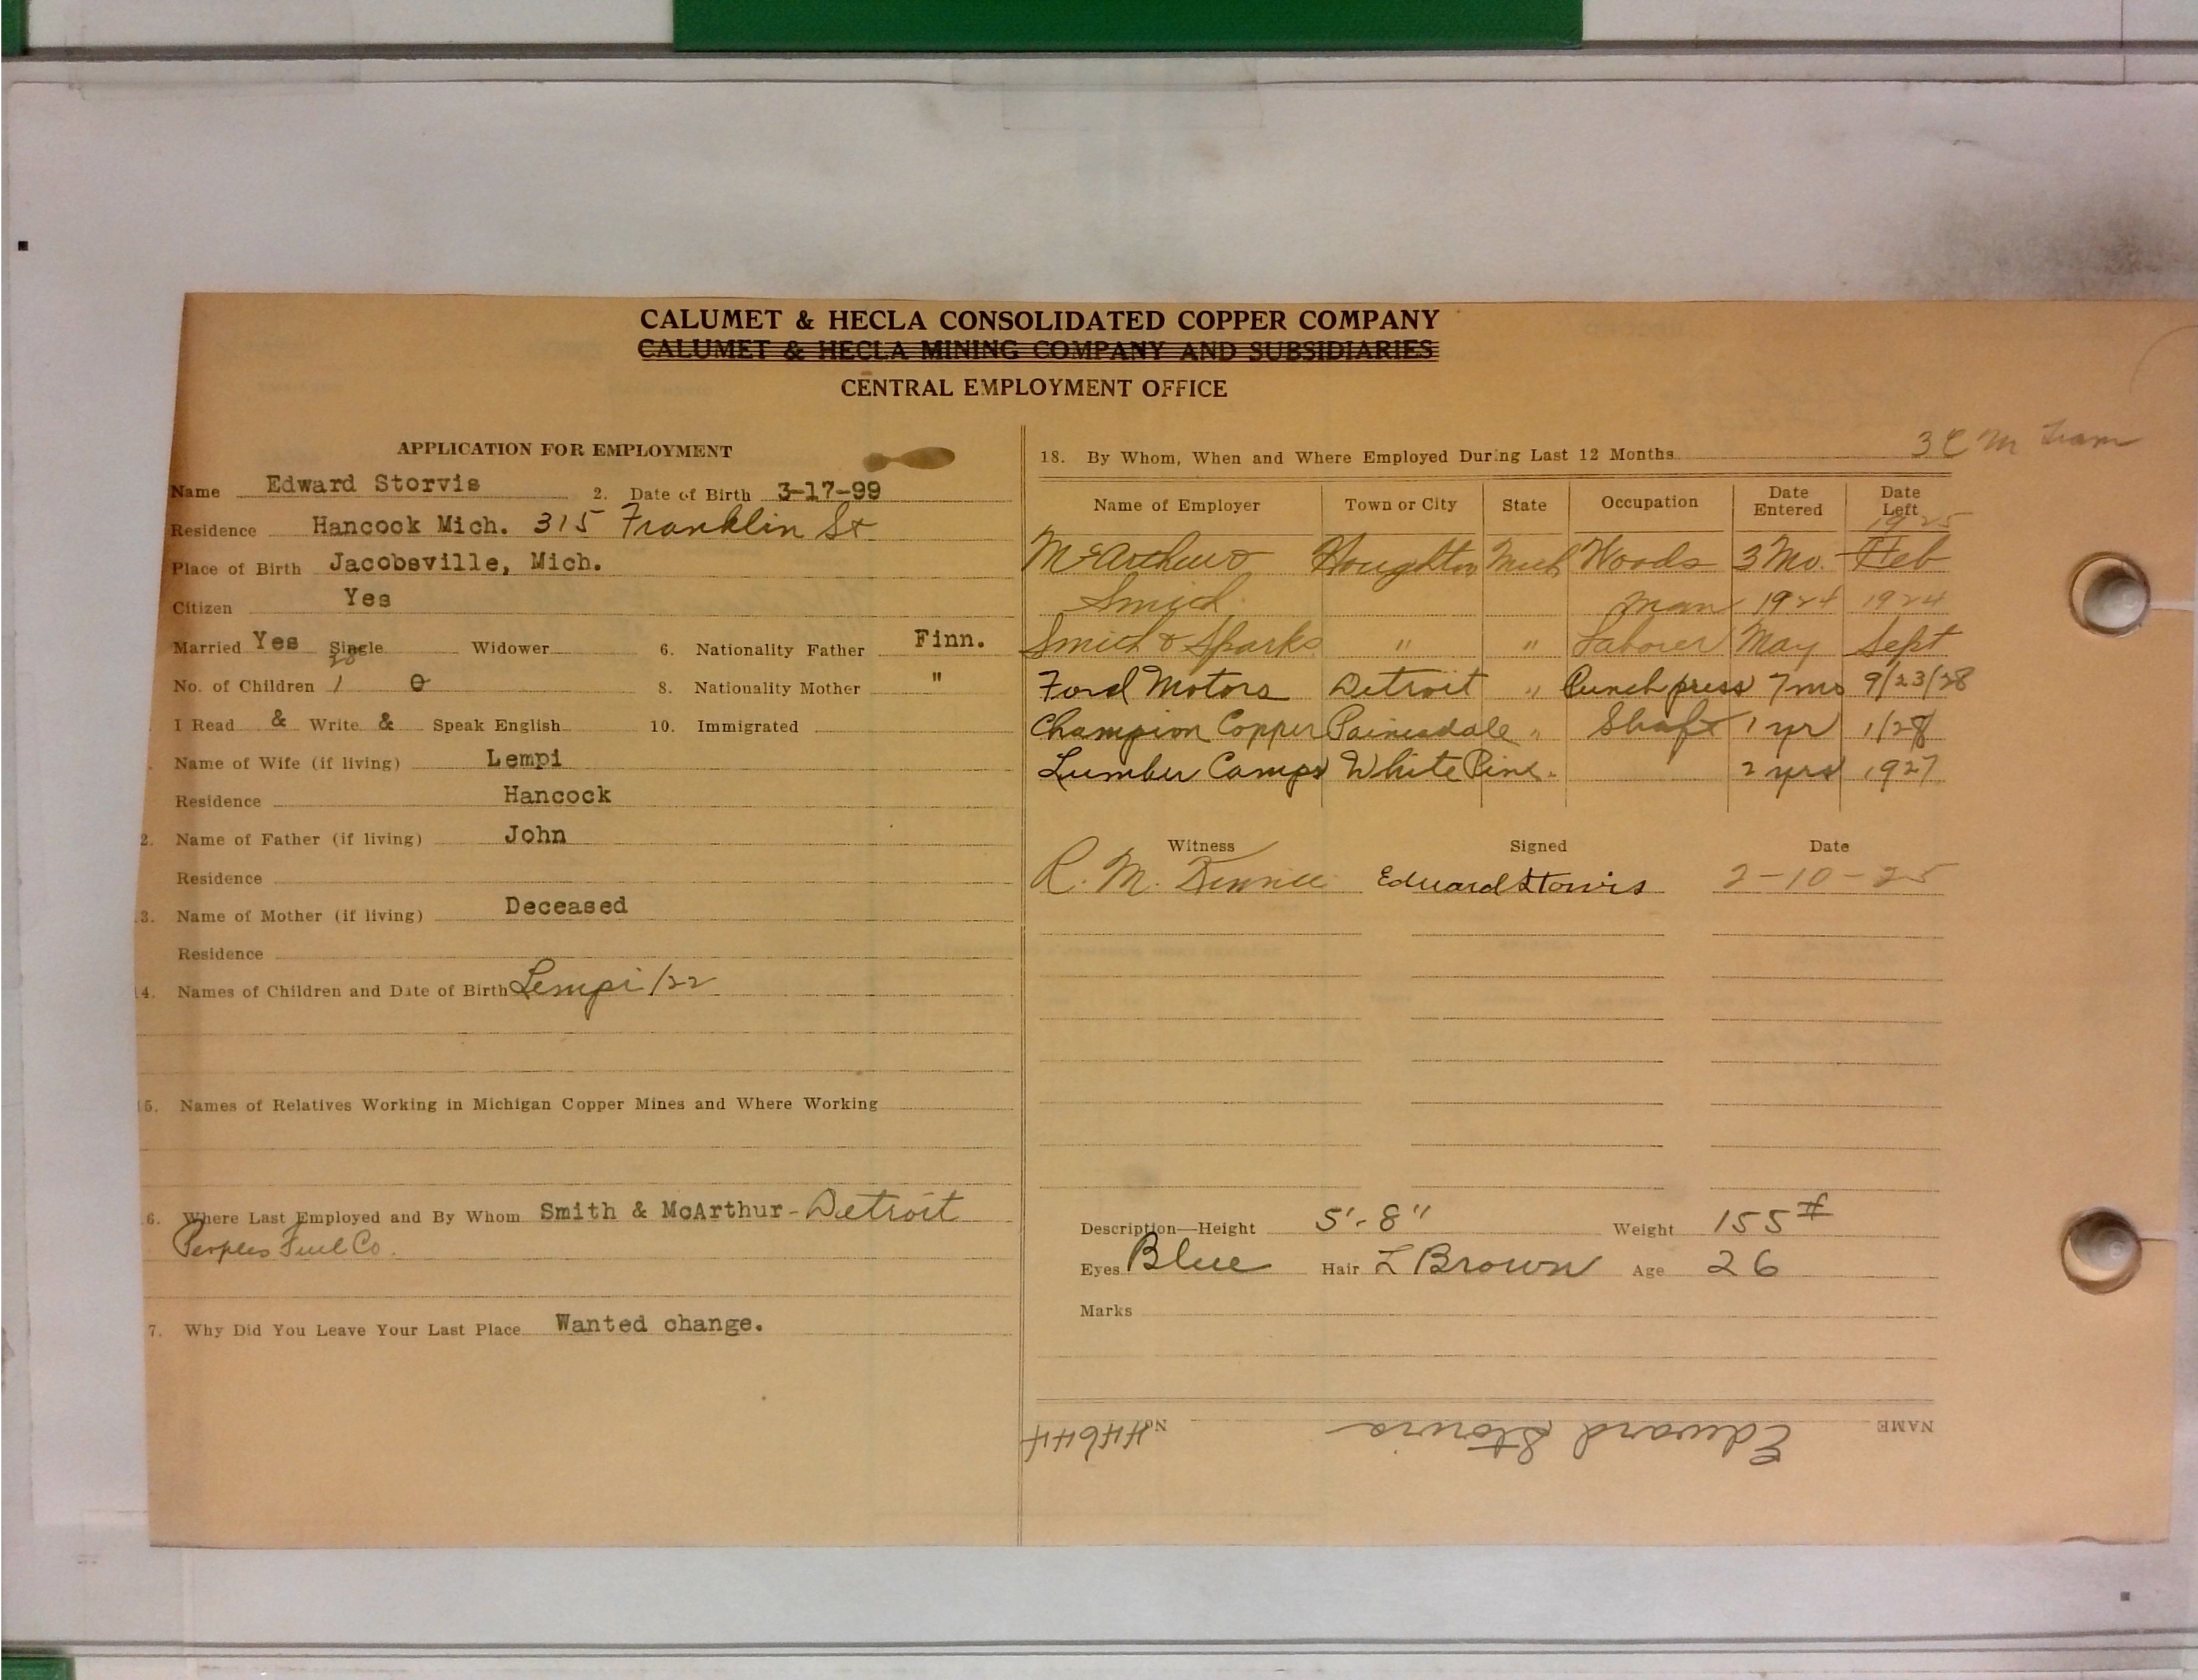 CALUMET & HECLA CONSOLIDATED COPPER COMPANY
CALUMET & HECLA MINING COMPANY AND SUBSIDIARIES
CENTRAL EMPLOYMENT OFFICE
APPLICATION FOR EMPLOYMENT
Name Edward Storvis 2. Date of Birth 3-17-99
Residence Hancock Mich. 315 Franklin St
Place of Birth Jacobsville, Mich.
Citizen Yes
Married Yes Single Widower 6. Nationality Father Finn.
No. of Children 1 0 8. Nationality Mother "
I Read & Write & Speak English 10. Immigrated
Name of Wife (if living) Lempi
Residence Hancock
2. Name of Father (if living) John
Residence
3. Name of Mother (if living) Deceased
Residence
14. Names of Children and Date of Birth Lempi /22
15. Names of Relatives Working in Michigan Copper Mines and Where Working
6. Where Last Employed and By Whom Smith & McArthur - Detroit
Peoples Fuel Co.
7. Why Did You Leave Your Last Place Wanted change.
3 C M Tram
18. By Whom, When and Where Employed During Last 12 Months
Name of Employer Town or City State Occupation Date Entered Date Left
1925
McArthur & Houghton Mich Woods 3 Mo. Feb
Smith man 1924 1924
Smith & Sparks " " Laborer May Sept
Ford Motors Detroit " Punch press 7 mos 9/23/28
Champion Copper Painesdale " Shaft 1 yr 1/28
Lumber Camps White Pine " 2 yrs 1927
Witness Signed Date
R. M. Edward Storvis 2-10-25
Description—Height 5'-8" Weight 155 #
Eyes Blue Hair L Brown Age 26
Marks
NAME Edward Storvis No. 44644